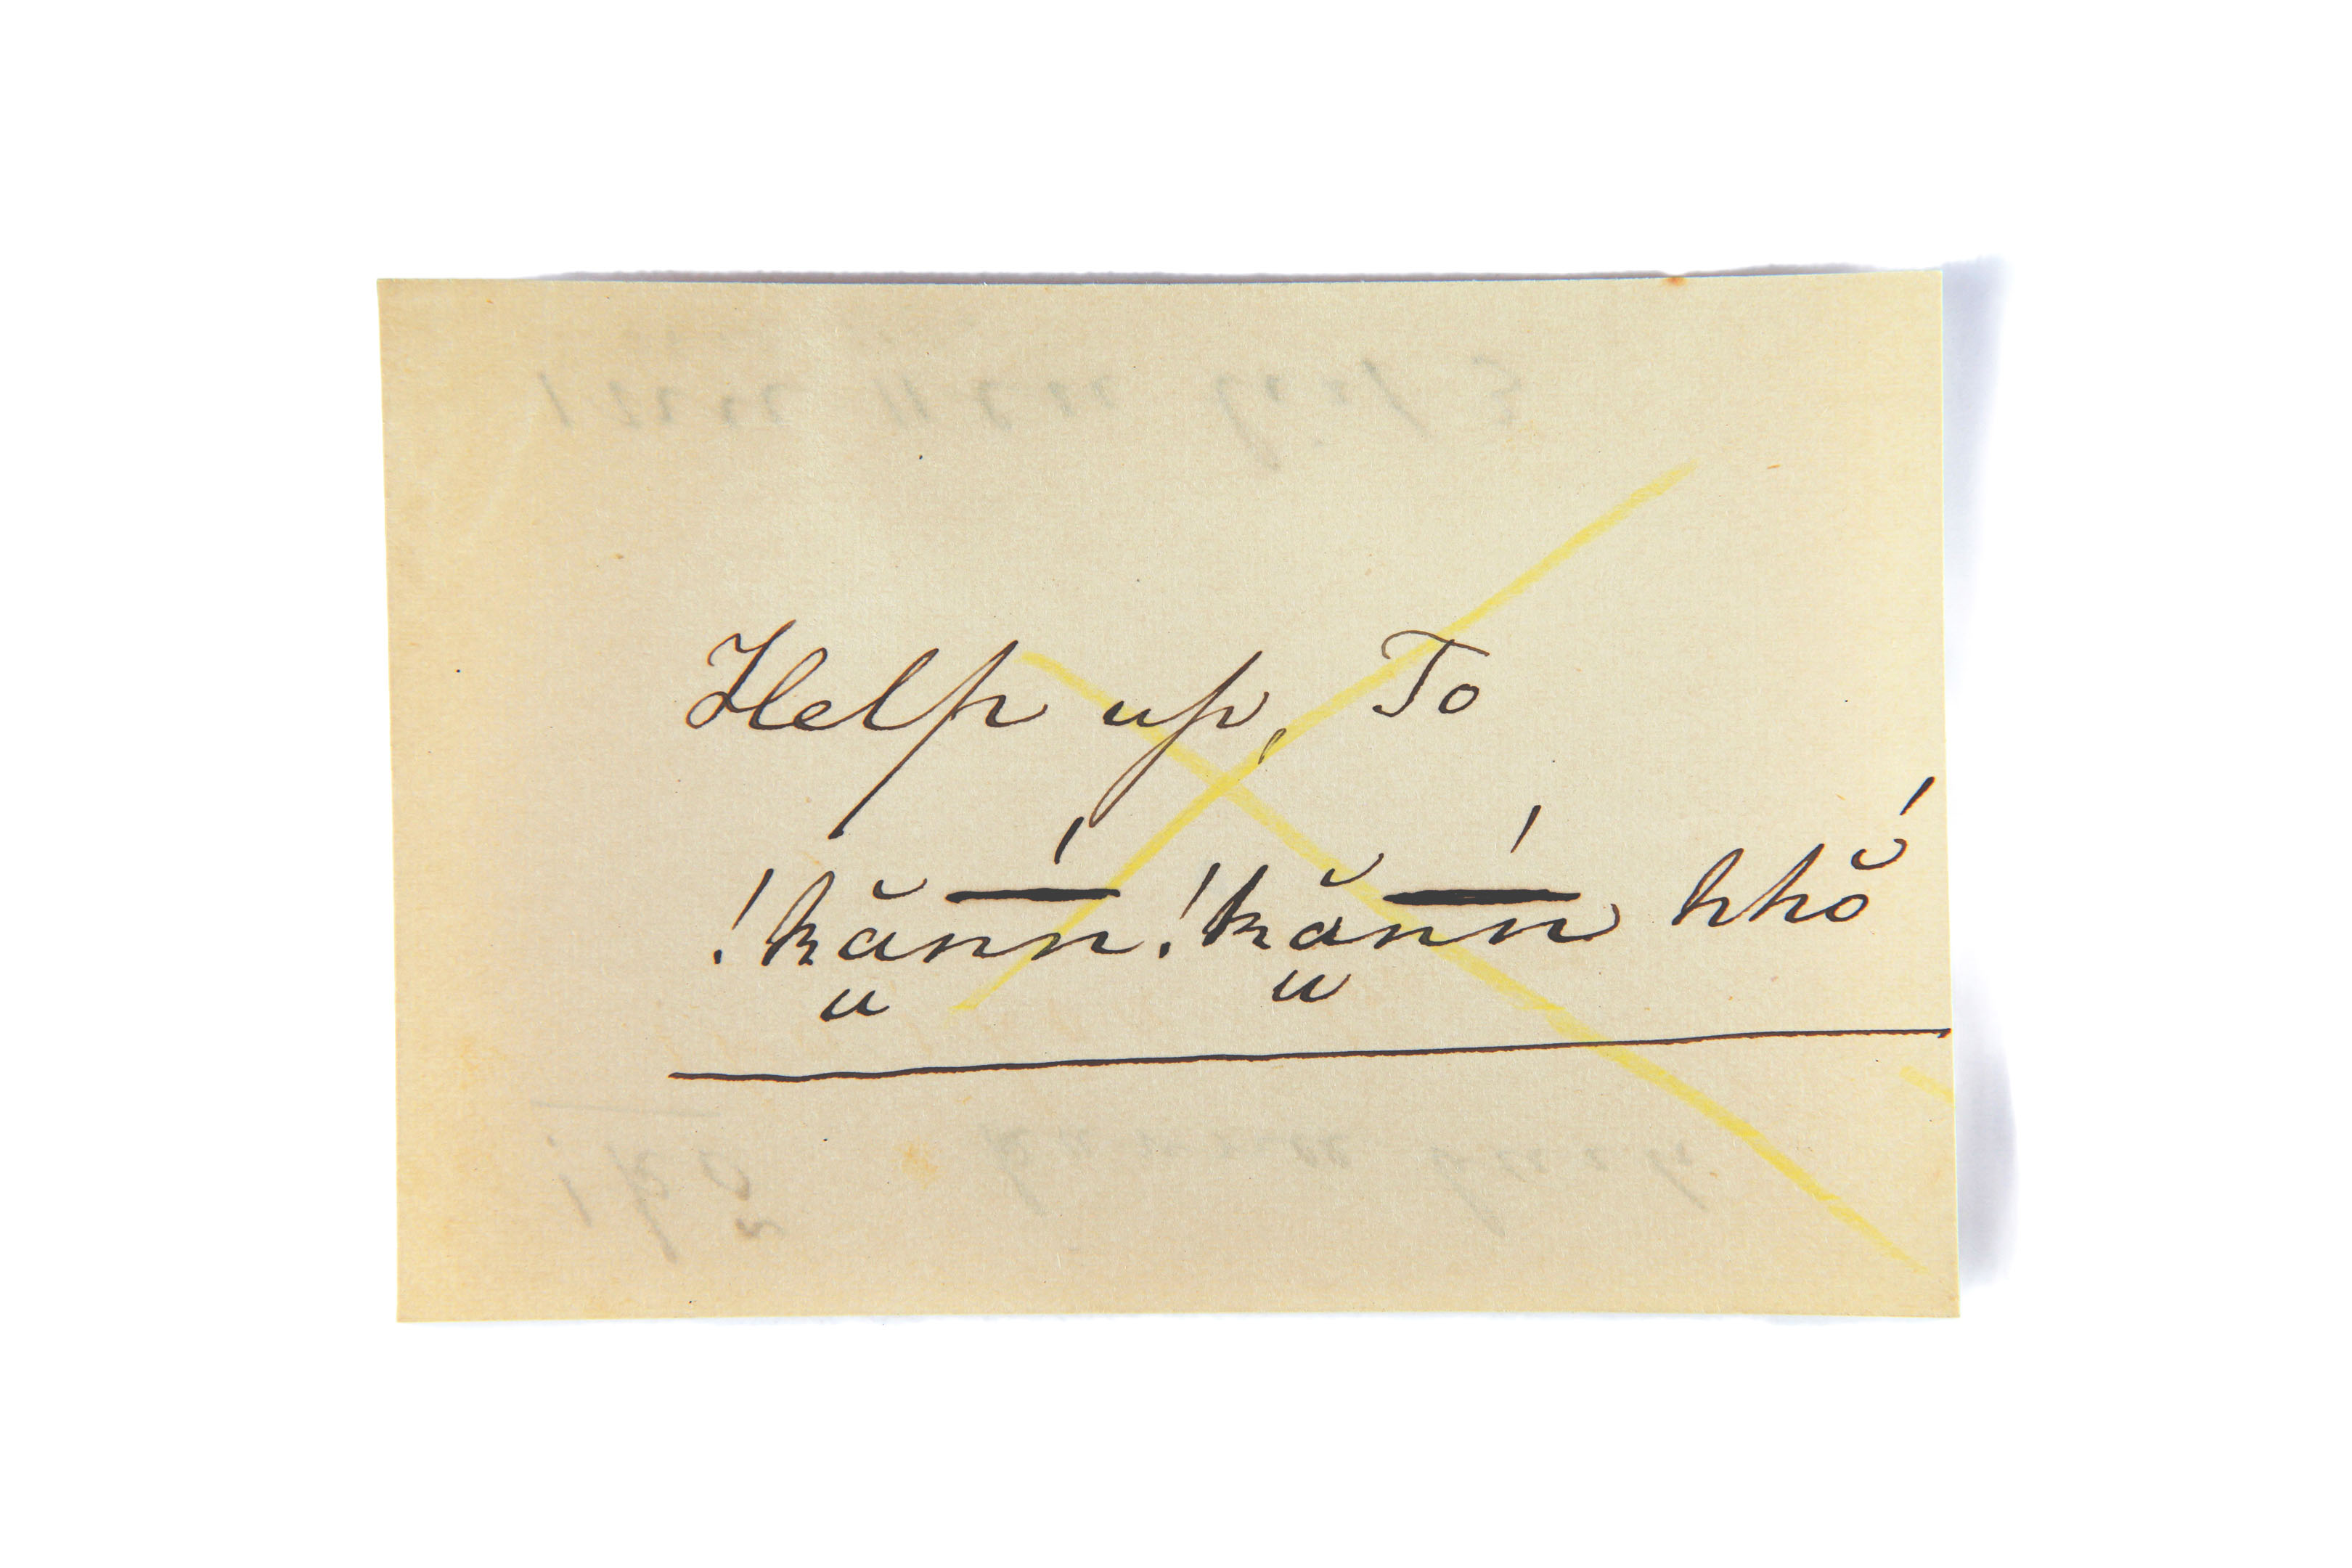 Help up, To
!kă̤n̅n̅́ !kă̤n̅n̅́ hhŏ́